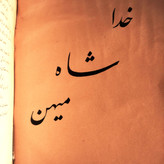 خدا
شاه
میهن